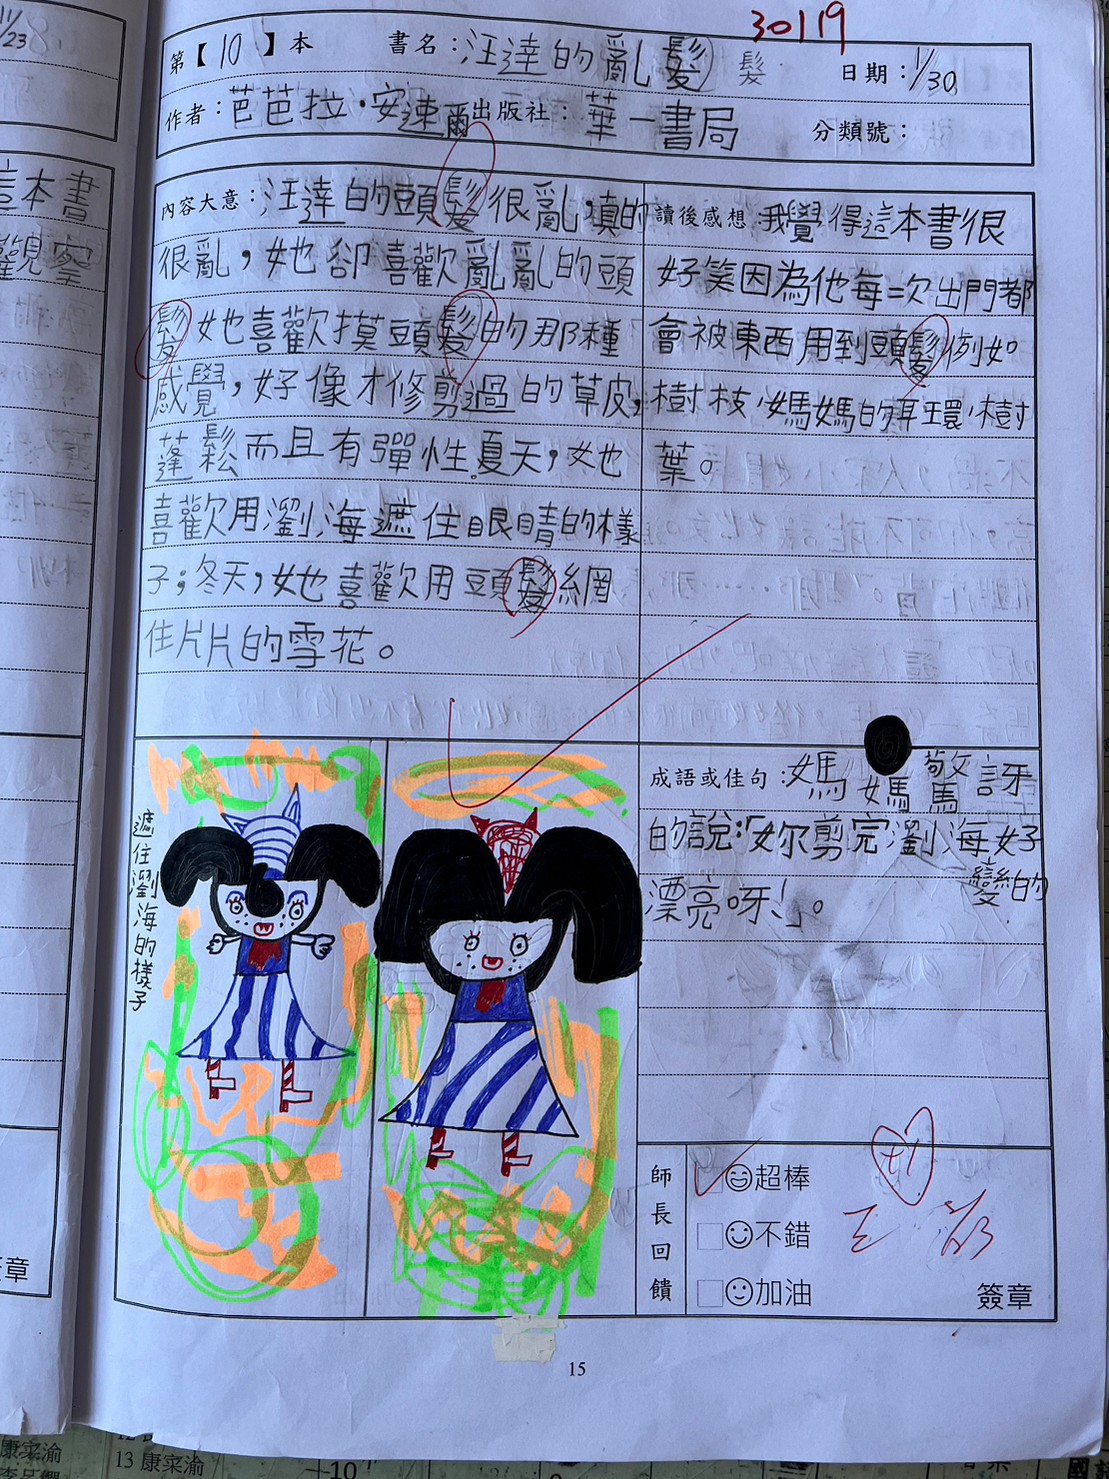 11/23
30119
第【10】本 書名：汪達的亂髮 髮 日期：1/30
作者：芭芭拉·安連爾 出版社：華一書局 分類號：
這本書
觀察
內容大意：汪達的頭髮很亂，真的
很亂，她卻喜歡亂亂的頭
髮她喜歡摸頭髮的那種
感覺，好像才修剪過的草皮，
蓬鬆而且有彈性夏天，她
喜歡用瀏海遮住眼睛的樣
子；冬天，她喜歡用頭髮網
住片片的雪花。
讀後感想：我覺得這本書很
好笑因為他每一次出門都
會被東西用到頭髮例如
樹枝、媽媽的耳環、樹
葉。
遮住瀏海的樣子
成語或佳句：媽媽驚訝
的說：「妳剪完瀏海好
漂亮呀！。
變的
師長回饋
超棒
不錯
加油
簽章
章
15
13 康寀渝
康寀渝
10